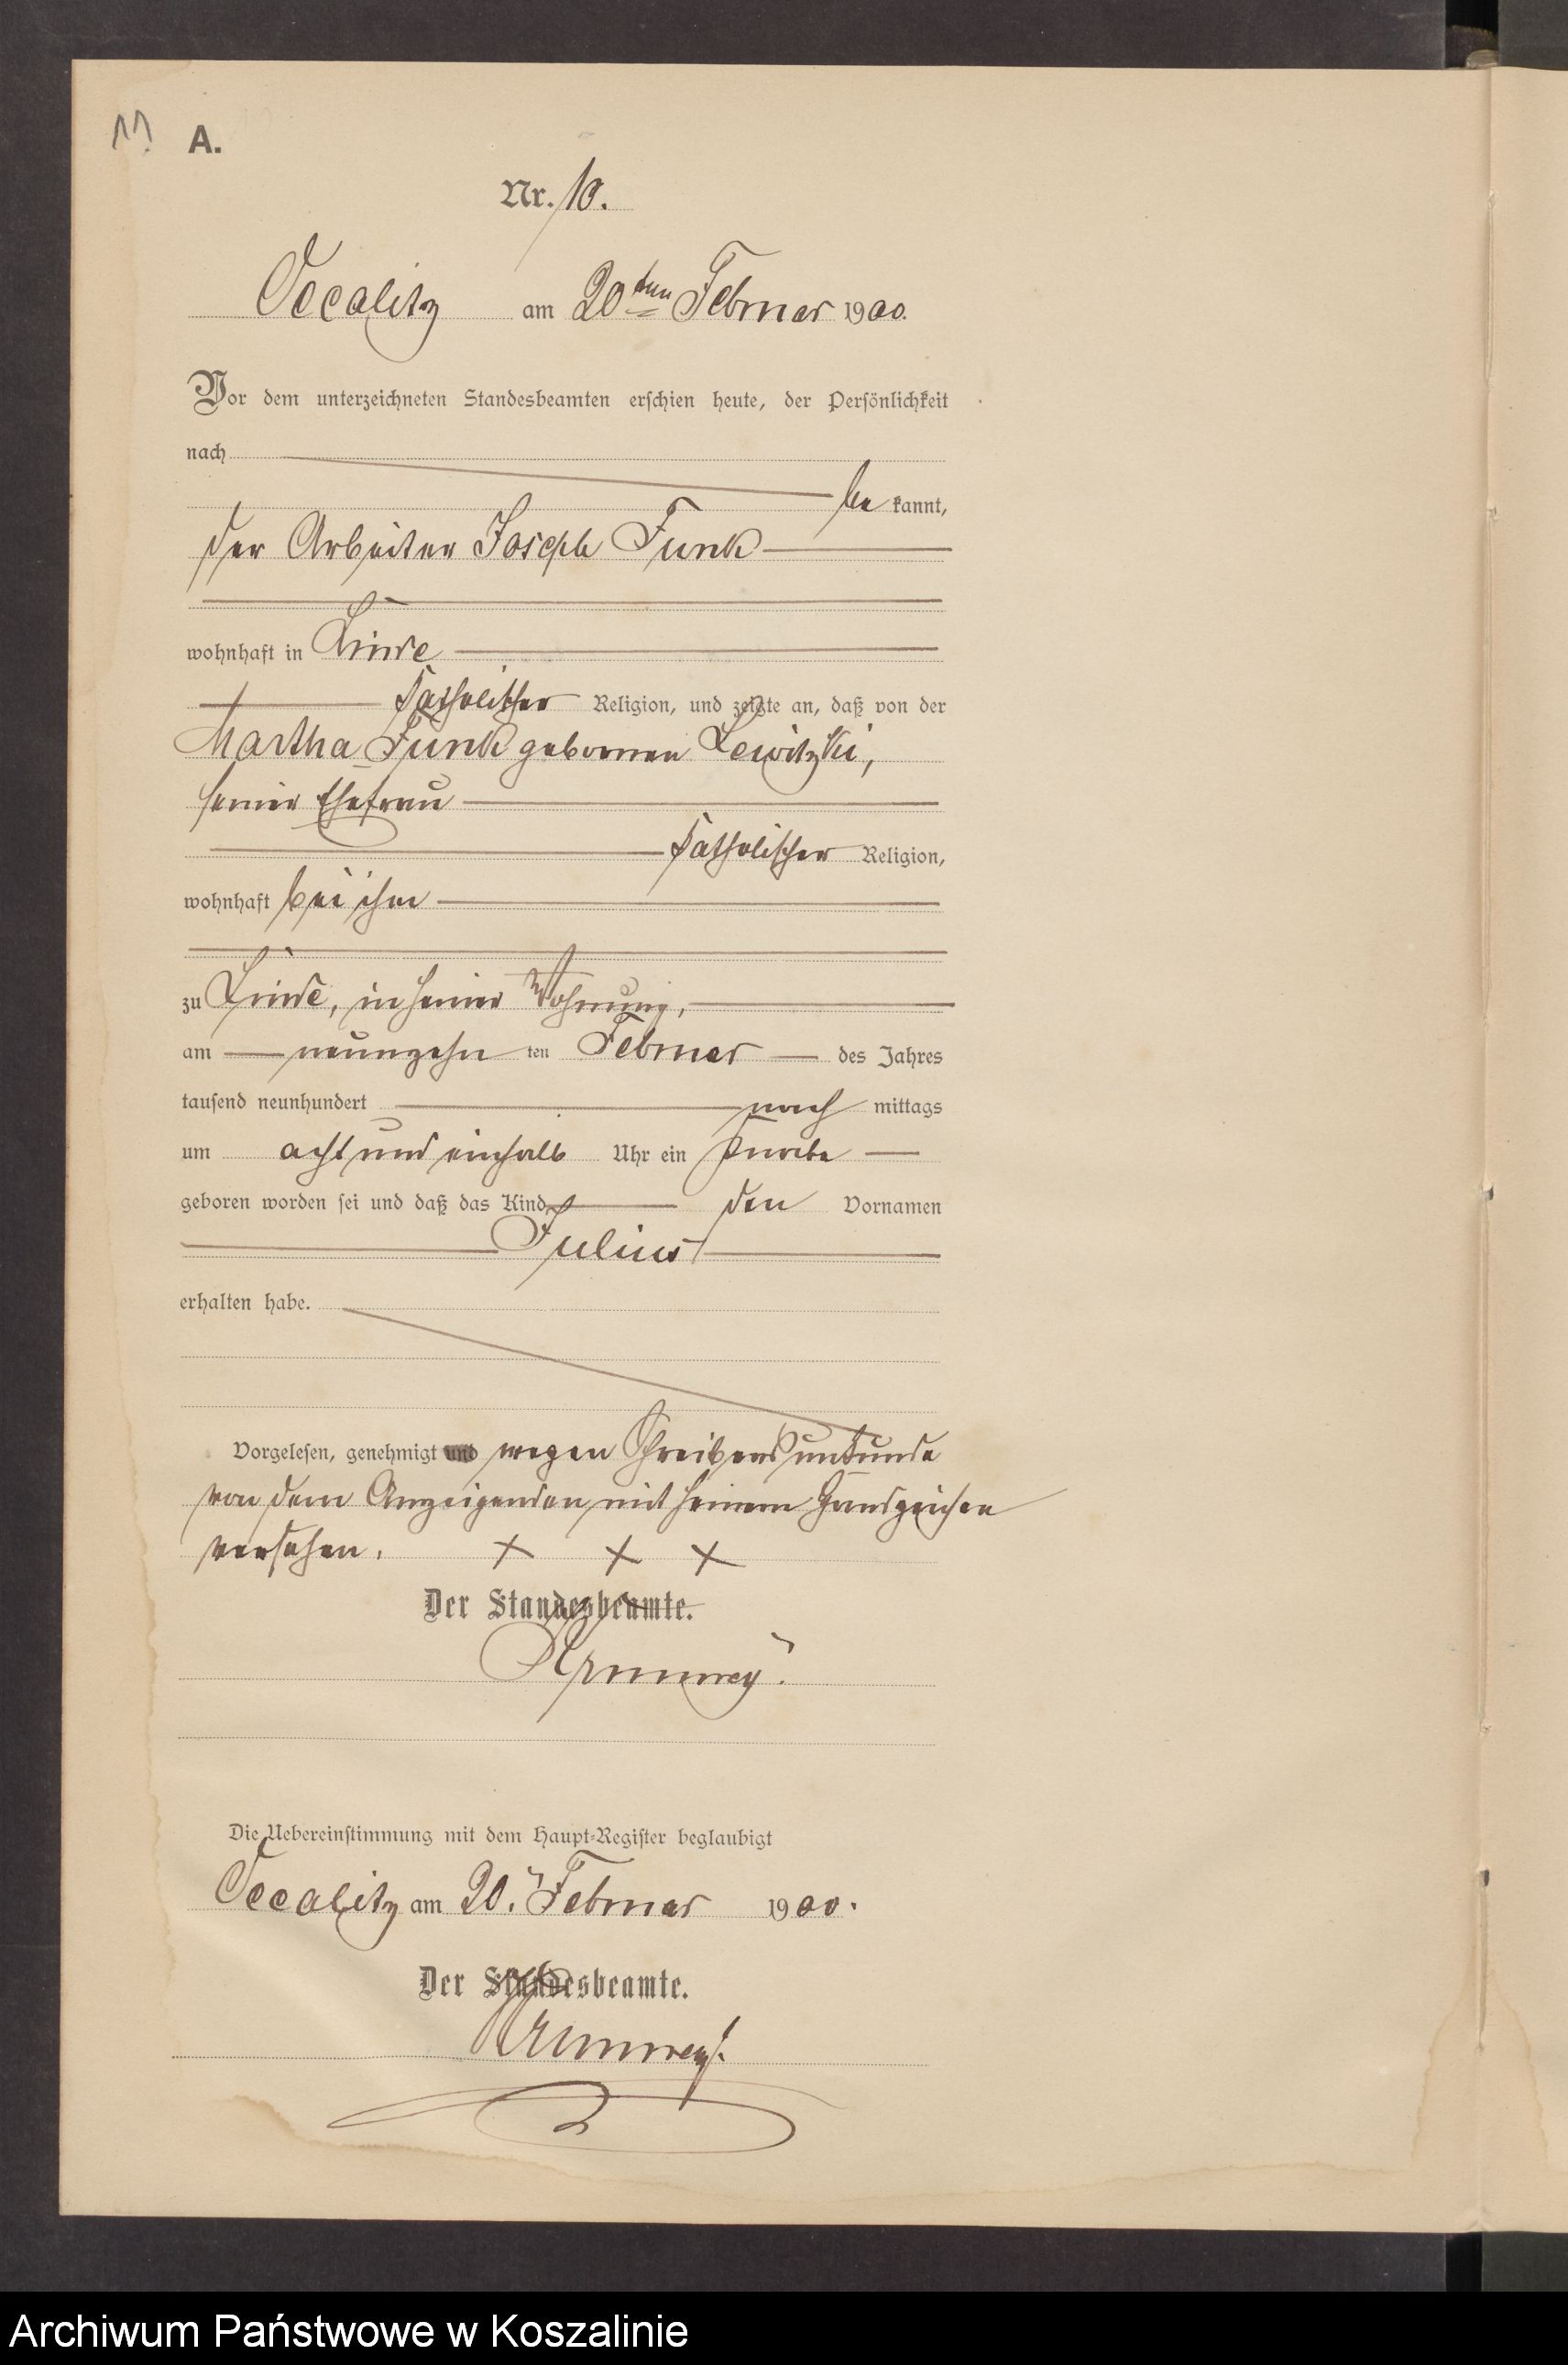 11
A.
Nr. 10.
Occalitz am 20ten Februar 1900.
Vor dem unterzeichneten Standesbeamten erschien heute, der Persönlichkeit
nach
be kannt,
der Arbeiter Joseph Funk
wohnhaft in Linde
katholischer Religion, und zeigte an, daß von der
Martha Funk geborenen Lewitzki,
seiner Ehefrau
katholischer Religion,
wohnhaft bei ihm
zu Linde, in seiner Wohnung,
am neunzehn ten Februar des Jahres
tausend neunhundert nach mittags
um acht und einhalb Uhr ein Knabe
geboren worden sei und daß das Kind den Vornamen
Julius
erhalten habe.
Vorgelesen, genehmigt und wegen Schreibensunkunde
von dem Anzeigenden mit seinem Handzeichen
versehen. + + +
Der Standesbeamte.
Die Uebereinstimmung mit dem Haupt-Register beglaubigt
Occalitz am 20. Februar 1900.
Der Standesbeamte.
Archiwum Państwowe w Koszalinie